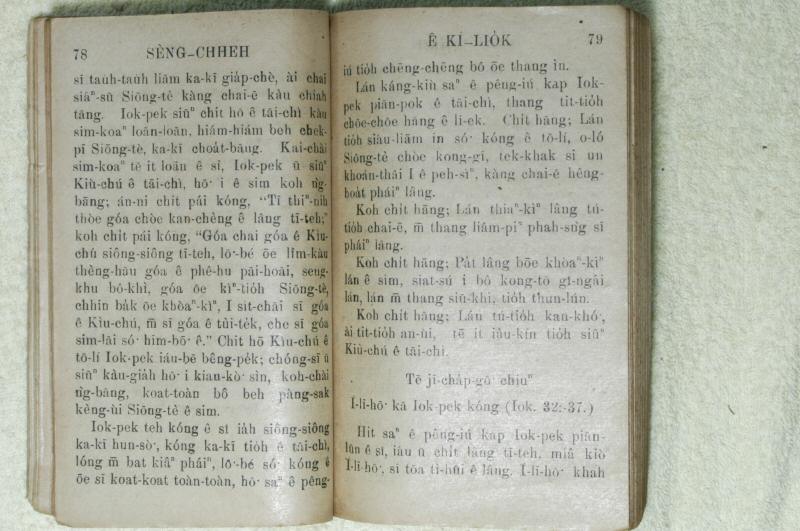 78 SÈNG-CHHEH
sī tauh-tauh liām ka-kī giáp-chè, ài chai
siáⁿ-sū Siōng-tè kàng chai-ē kàu chiah
tāng. Iok-pek siūⁿ chit hō ê tāi-chì kàu
sim-koaⁿ loān-loān, hiám-hiám beh chek-
pī Siōng-tè, ka-kī choát-bāng. Kai-chài
sim-koaⁿ tē it loān ê sî, Iok-pek ū siūⁿ
Kiù-chú ê tāi-chì, hō͘ i ê sim koh ǹg-
bāng; án-ni chit pái kóng, “Tī thiⁿ-nih
thòe góa chòe kan-chèng ê lâng tī-teh;”
koh chit pái kóng, “Góa chai góa ê Kiù-
chú siông-siông tī-teh, lō͘-bé ōe lîm-kàu
thèng-hāu góa ê phê-hu pāi-hoāi, seng-
khu bô-khì, góa ōe kìⁿ-tio̍h Siōng-tè,
chhin ba̍k ōe khòaⁿ-kìⁿ, I sit-chāi sī góa
ê Kiù-chú, m̄ sī góa ê tùi-te̍k, che sī góa
sim-lāi só͘ him-bō͘ ê.” Chit hō Kiù-chú ê
tō-lí Iok-pek iáu-bē bêng-pe̍k; chóng-sī ū
siūⁿ kàu-gia̍h hō͘ i kian-kò͘ sìn, koh-chài
ǹg-bāng, koat-toàn bô beh pàng-sak
kèng-ùi Siōng-tè ê sim.
Iok-pek teh kóng ê sî ia̍h siông-siông
ka-kī hun-sò͘, kóng ka-kī tio̍h ê tāi-chì,
lóng m̄ bat kiâⁿ pháiⁿ, lō͘-bé só͘ kóng ê
ōe sī koat-koat toàn-toàn, hō͘ saⁿ ê pêng-
Ê KÌ-LIO̍K 79
iú tio̍h chēng-chēng bô ōe thang ìn.
Lán káng-kiù saⁿ ê pêng-iú kap Iok-
pek piān-pok ê tāi-chì, thang tit-tio̍h
chōe-chōe hāng ê lī-ek. Chi̍t hāng; Lán
tio̍h siàu-liām in só͘ kóng ê tō-lí, o-ló
Siōng-tè chòe kong-gī, tek-khak sì un
khoán-thāi I ê peh-sìⁿ, kàng chai-ē hêng-
hoa̍t pháiⁿ lâng.
Koh chi̍t hāng; Lán thiaⁿ-kìⁿ lâng tú-
tio̍h chai-ē, m̄ thang liâm-piⁿ phah-sǹg sī
pháiⁿ lâng.
Koh chi̍t hāng; Pa̍t lâng bōe khòaⁿ-kìⁿ
lán ê sim, siat-sú i bô kong-tō gī-ngāi
lán, lán m̄ thang siū-khì, tio̍h thun-lún.
Koh chi̍t hāng; Lán tú-tio̍h kan-khó͘,
ài tit-tio̍h an-ùi, tē it iàu-kín tio̍h siūⁿ
Kiù-chú ê tāi-chì.
Tē jī-cha̍p-gō͘ chiuⁿ
Í-lī-hō͘ kā Iok-pek kóng (Iok. 32:-37.)
Hit saⁿ ê pêng-iú kap Iok-pek piān-
lūn ê sî, iáu ū chi̍t lâng tī-teh, miâ kiò
Í-lī-hō͘, sī tōa tì-hūi ê lâng. Í-lī-hō͘ khah